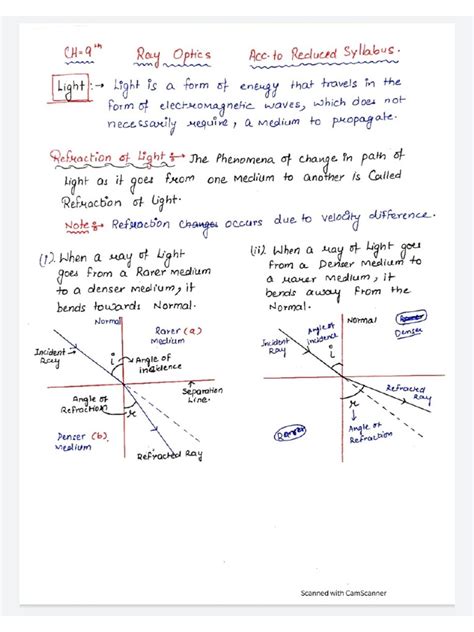 CH=9th Ray Optics Acc. to Reduced Syllabus.
Light :→ Light is a form of energy that travels in the
form of electromagnetic waves, which does not
necessarily require, a medium to propagate.
Refraction of Light :→ The Phenomena of change in path of
Light as it goes from one Medium to another is Called
Refraction of Light.
Note :→ Refraction Changes occurs due to velocity difference.
(i). When a ray of Light
goes from a Rarer medium
to a denser medium, it
bends towards Normal.
Normal
Rarer (a)
Medium
Incident
Ray
i
Angle of
incidence
Separation
Line.
Angle of
Refraction
r
Denser (b)
Medium
Refracted Ray
(ii). When a ray of Light goes
from a Denser Medium to
a rarer Medium, it
bends away from the
Normal.
Normal
Denser
Angle of
incidence
Incident
Ray
i
Refracted
Ray
r
Angle of
Refraction
Scanned with CamScanner